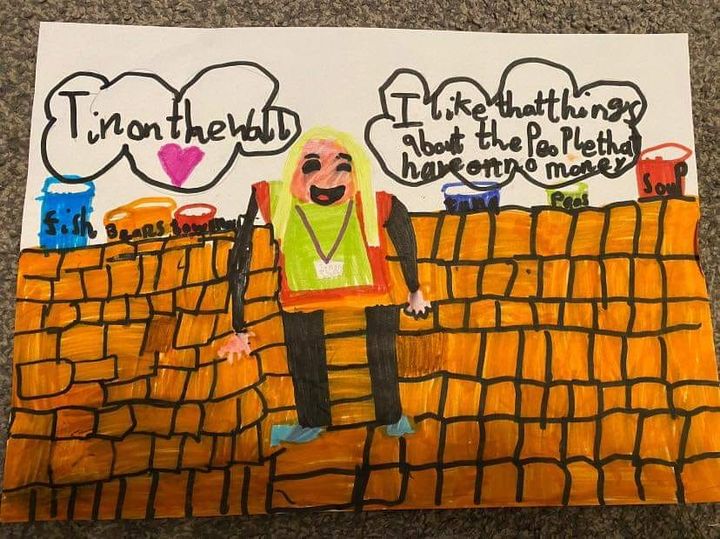 Tin on the Wall
I like that things
about the People that
have on no money
fish
Beans
Peas
Soup